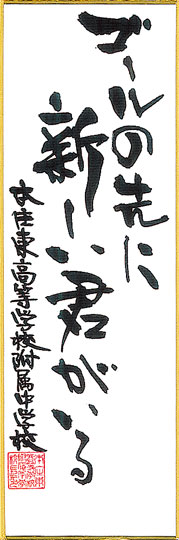 ゴールの先に
新しい君がいる
本庄東高等学校附属中学校